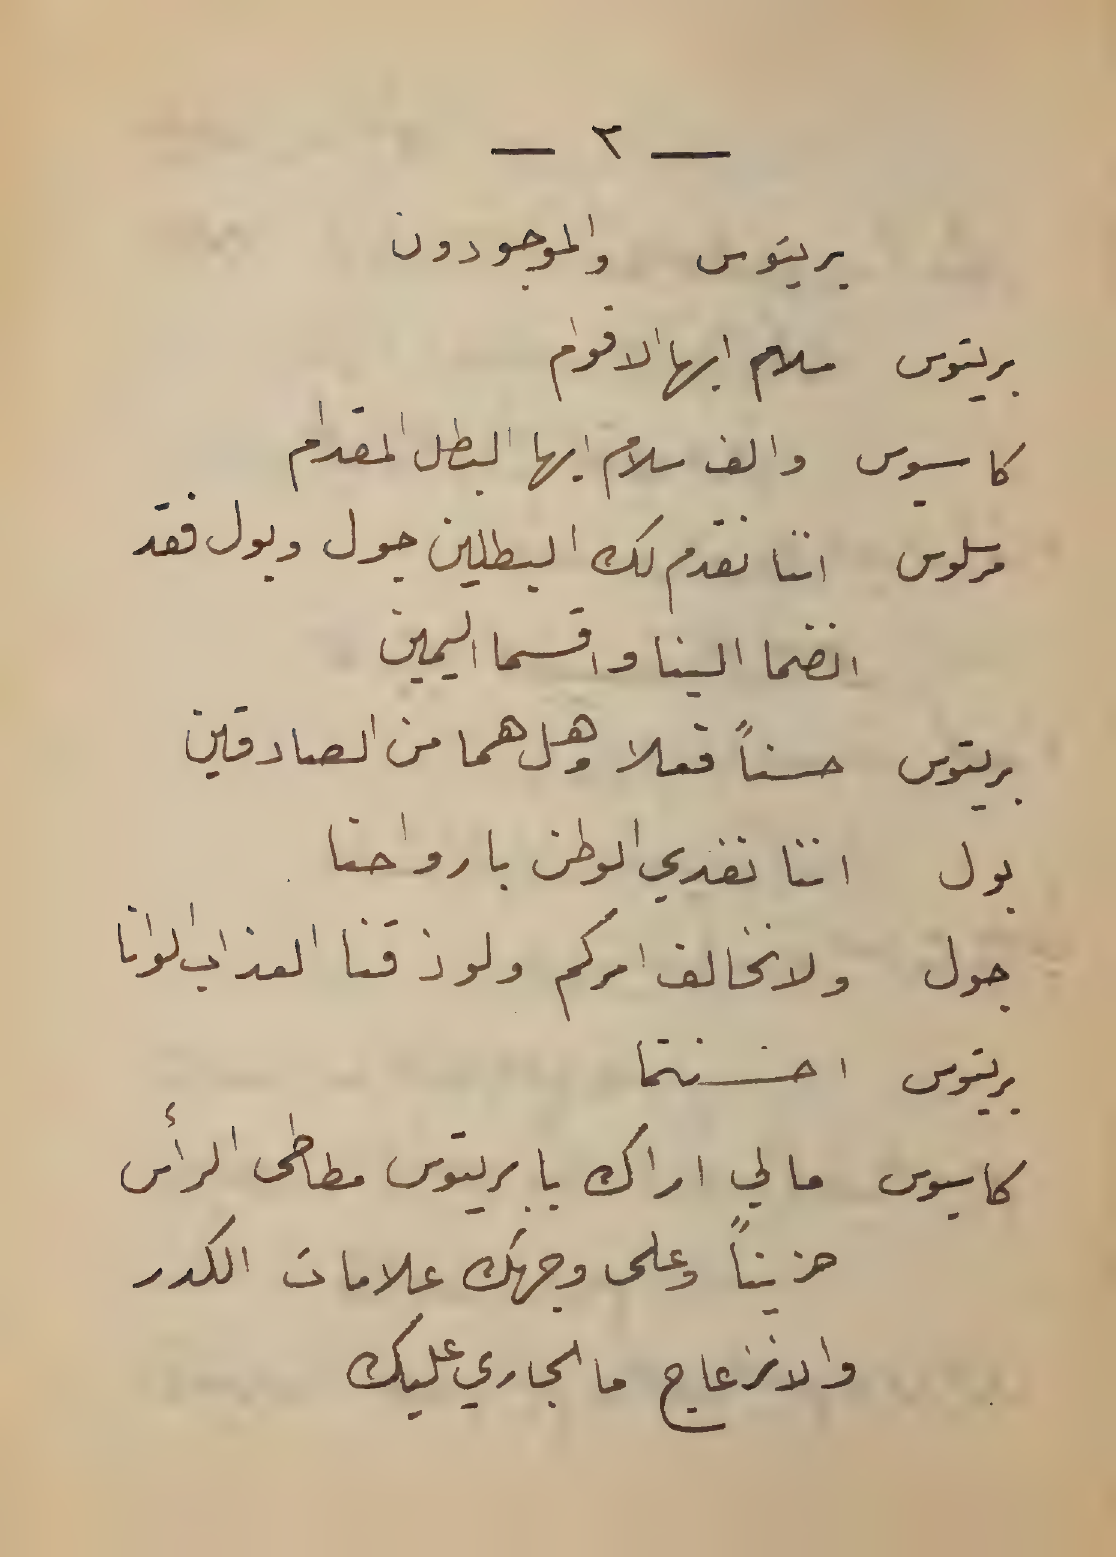 — ٣ —
بريتوس والموجودون
بريتوس سلام ايها الاقوام
كاسيوس والف سلام ايها البطل المقدام
مرسلوس اننا نقدم لك البطلين جول وبول فقد
انضما الينا واقسما اليمين
بريتوس حسناً فعلا وهل هما من الصادقين
بول اننا نفدي الوطن بارواحنا
جول ولا نخالف امركم ولو ذقنا العذاب الوانا
بريتوس احسنتما
كاسيوس مالي اراك يا بريتوس مطاطئ الرأس
حزيناً وعلى وجهك علامات الكدر
والانزعاج ما الجاري عليك